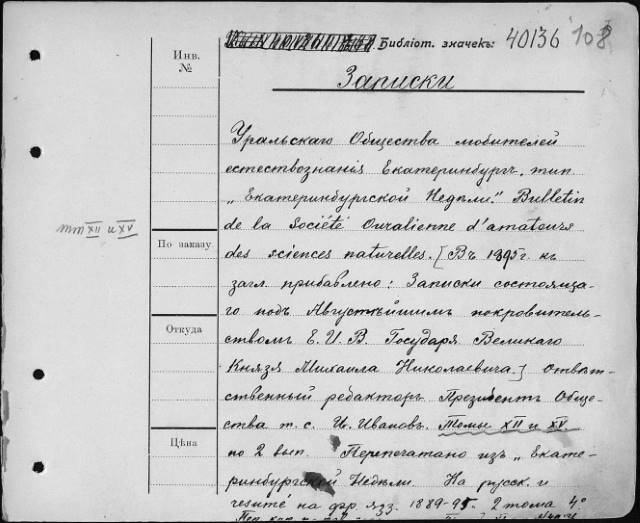 Библіот. значекъ: 40136 108
Инв.
№
Записки
Уральскаго Общества любителей
естествознанія Екатеринбургъ, тип.
„Екатеринбургской Недѣли." Bulletin
тт XII и XV
de la Société Ouralienne d'amateurs
По заказу
des sciences naturelles. [Въ 1895 г. къ
загл. прибавлено: Записки состояща-
го подъ Августѣйшимъ покровитель-
Откуда
ствомъ Е. И. В. Государя Великаго
Князя Михаила Николаевича.] Отвѣт-
ственный редакторъ Президентъ Обще-
ства т. с. И. Ивановъ. Томы XII и XV.
Цѣна
по 2 вып. Перепечатано изъ „Екате-
ринбургской Недѣли. На русск. и
resumé на фр. яз. 1889-95. 2 тома 4°